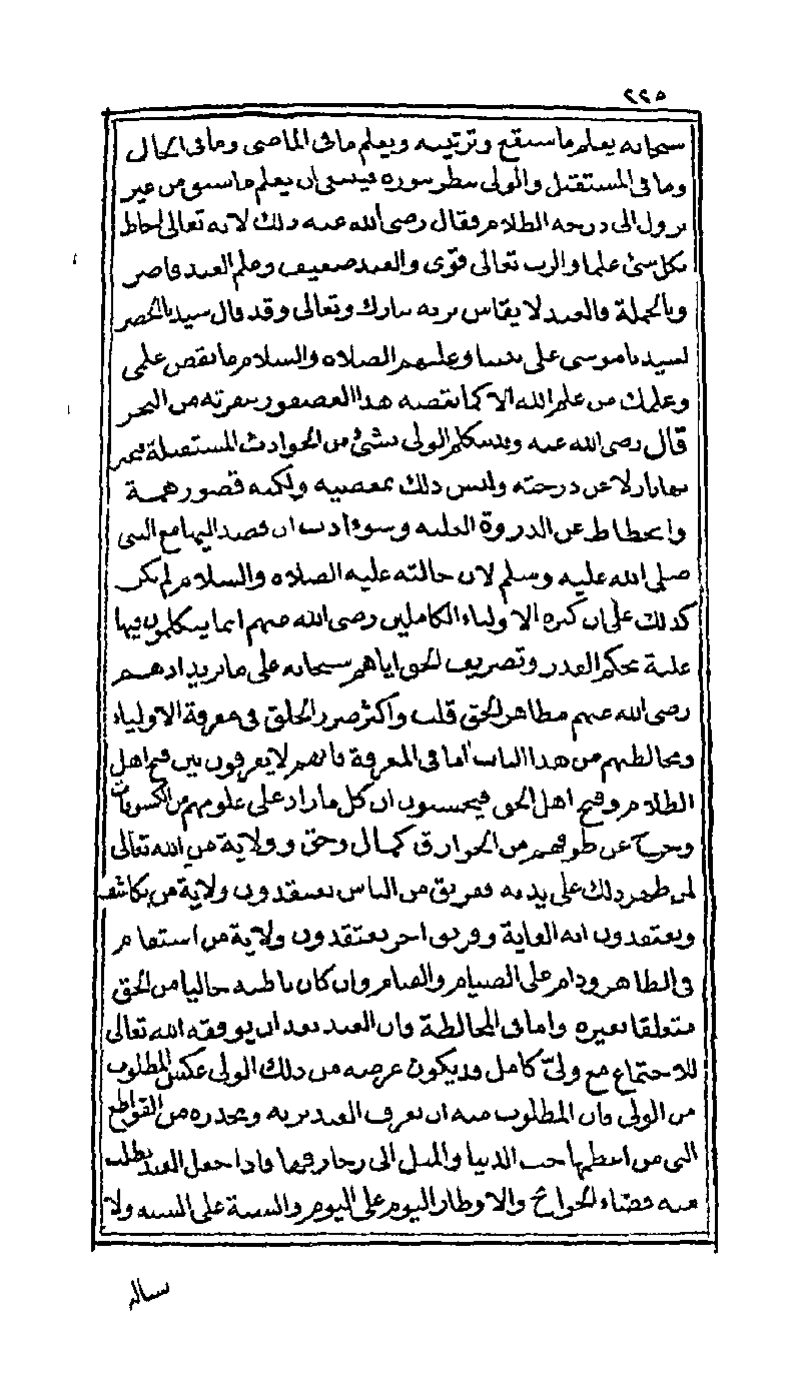 ٢٢٥
سبحانه يعلم ما سيقع وترتيبه ويعلم ما في الماضي وما في الحال
وما في المستقبل والولي ينظر بنوره فينبغي ان يعلم ما سبق من غير
نزول الى درجة الظلام فقال رضي الله عنه ذلك لانه تعالى احاط
بكل شئ علما والرب تعالى قوي والعبد ضعيف وعلم العبد قاصر
وبالجملة فالعبد لا يقاس بربه تبارك وتعالى وقد قال سيدنا الخضر
لسيدنا موسى على نبينا وعليهم الصلاه والسلام ما نقص علمي
وعلمك من علم الله الا كما نقصه هذا العصفور بنقرته من البحر
قال رضي الله عنه وقد يتكلم الولي بشئ من الحوادث المستقبلة فيخبر
بها نازلا عن درجته وليس ذلك بمعصيه ولكنه قصور همة
وانحطاط عن الذروة العليه وسوء ادب ان قصد اليها مع النبي
صلى الله عليه وسلم لان حالته عليه الصلاه والسلام لم تكن
كذلك على ان كثره الاولياء الكاملين رضي الله عنهم انما يتكلمون بها
غلبة بحكم القدر وتصريف الحق اياهم سبحانه على ما يريد اذ هم
رضي الله عنهم مظاهر الحق قلت واكثر ضرر الخلق في معرفة الاولياء
ومخالطتهم من هذا الباب اما في المعرفة فانهم لا يعرفون بين فتح اهل
الظلام وفتح اهل الحق فيحسبون ان كل ما زاد على علومهم من الكشوفات
وخرج عن طوقهم من الخوارق كمال وحق وولاية من الله تعالى
لمن ظهر ذلك على يديه ففريق من الناس يعتقدون ولاية من يكاشف
ويعتقدون انه الغاية وفريق اخر يعتقدون ولاية من استقام
في الظاهر ودام على الصيام والقيام وان كان باطنه خاليا من الحق
متعلقا بغيره واما في المخالطة فان العبد بعد ان يوفقه الله تعالى
للاجتماع مع ولي كامل قد يكون غرضه من ذلك الولي عكس المطلوب
من الولي فان المطلوب منه ان يعرف العبد بربه ويحذره من القواطع
التي من اعظمها حب الدنيا والميل الى زخارفها فاذا جعل العبد يطلب
منه قضاء الحوائج والاوطار اليوم على اليوم والسنة على السنه ولا
يساله